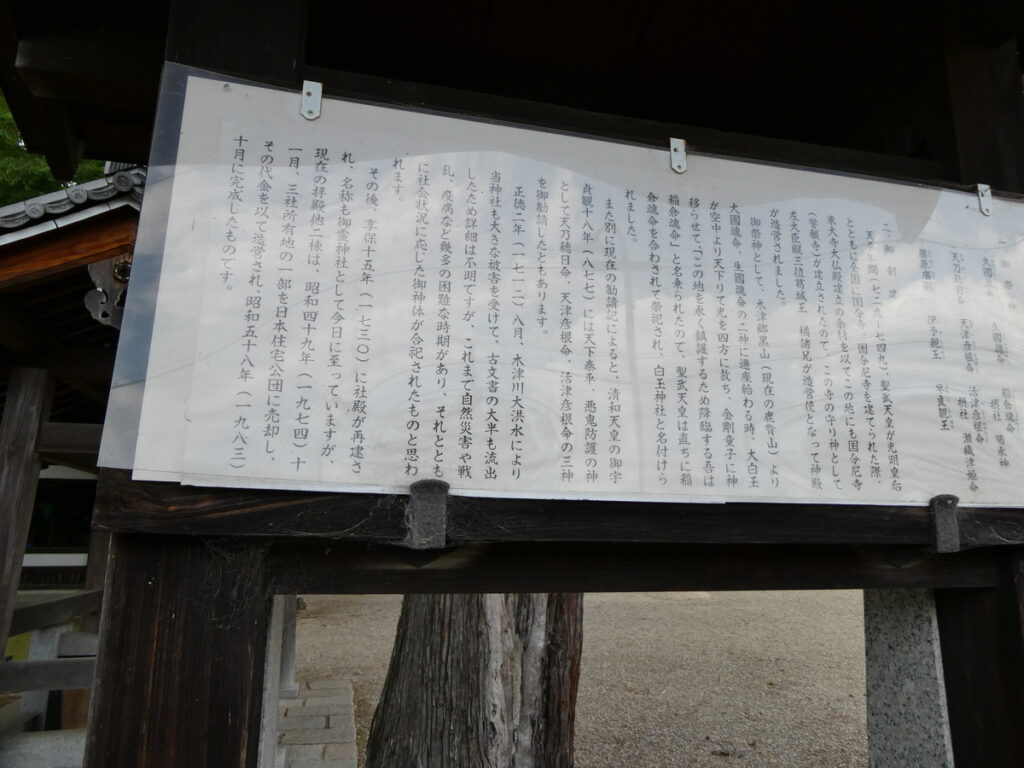 一、御祭神
大國魂命 生國魂命 稲倉魂命
摂社 菊永神
天乃刃穂日命 天津彦根命 活津彦根命
摂社 瀬織津姫命
藤原廣嗣 伊予親王 早良親王
二、御創建
天平年間(七二九〜七四九)、聖武天皇が光明皇后
とともに全国に国分寺、国分尼寺を建てられた際、
東大寺大仏殿建立の余材を以てこの地にも国分尼寺
(華願寺)が建立されたので、この寺の守り神として
左大臣縦三位葛城王 橘諸兄が造営使となって神殿
が造営されました。
御祭神として、木津郷黒山(現在の鹿背山)より
大國魂命、生國魂命の二神に遷座給わる時、大白王
が空中より天下りて光を四方に放ち、金剛童子に神
移らせて「この地を永く鎮護するため降臨する吾は
稲倉魂命」と名乗られたので、聖武天皇は直ちに稲
倉魂命を合わされて祭祀され、白王神社と名付けら
れました。
また別に現在の勧請記によると、清和天皇の御宇
貞観十八年(八七七)には天下泰平、悪鬼防護の神
として天乃刃穂日命、天津彦根命、活津彦根命の三神
を御勧請したともあります。
正徳二年(一七一二)八月、木津川大洪水により
当神社も大きな被害を受けて、古文書の大半も流出
したため詳細は不明ですが、これまで自然災害や戦
乱、疫病など幾多の困難な時期があり、それととも
に社会状況に応じた御神体が合祀されたものと思わ
れます。
その後、享保十五年(一七三〇)に社殿が再建さ
れ、名称も御霊神社として今日に至っていますが、
現在の拝殿他二棟は、昭和四十九年(一九七四)十
一月、三社所有地の一部を日本住宅公団に売却し、
その代金を以て造営され、昭和五十八年(一九八三)
十月に完成したものです。